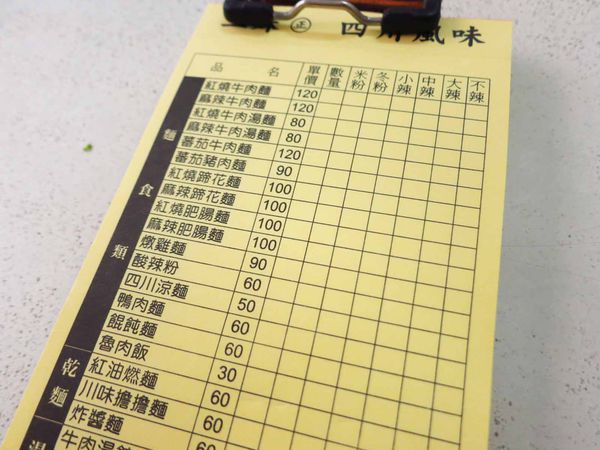 正 四川風味
品名 單價 數量 米粉 冬粉 小辣 中辣 大辣 不辣
麵食類
紅燒牛肉麵 120
麻辣牛肉麵 120
紅燒牛肉湯麵 80
麻辣牛肉湯麵 80
蕃茄牛肉麵 120
蕃茄豬肉麵 90
紅燒蹄花麵 100
麻辣蹄花麵 100
紅燒肥腸麵 100
麻辣肥腸麵 100
燉雞麵 90
酸辣粉 60
四川涼麵 50
鴨肉麵 60
餛飩麵 60
魯肉飯 30
乾麵
紅油燃麵 60
川味擔擔麵 60
炸醬麵 60
湯
牛肉湯